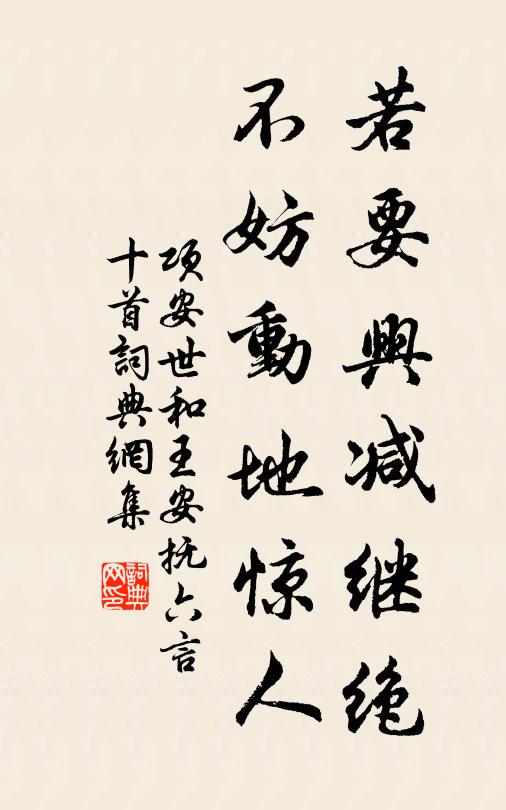 若要興减继绝
不妨動地惊人
项安世和王安抚六言
十首詞典網集
詞典
网印